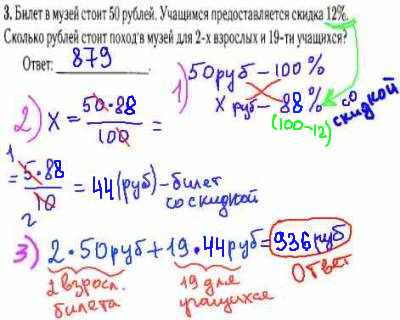 3. Билет в музей стоит 50 рублей. Учащимся предоставляется скидка 12%.
Сколько рублей стоит поход в музей для 2-х взрослых и 19-ти учащихся?
Ответ: 879.
1) 50 руб – 100%
x руб – 88% со скидкой
(100-12)
2) x = 50·88/100 =
= 5·88/10 = 44 (руб) – билет
со скидкой
1
2
3) 2·50 руб + 19·44 руб = 936 руб
2 взросл. билета
19 для учащихся
ответ